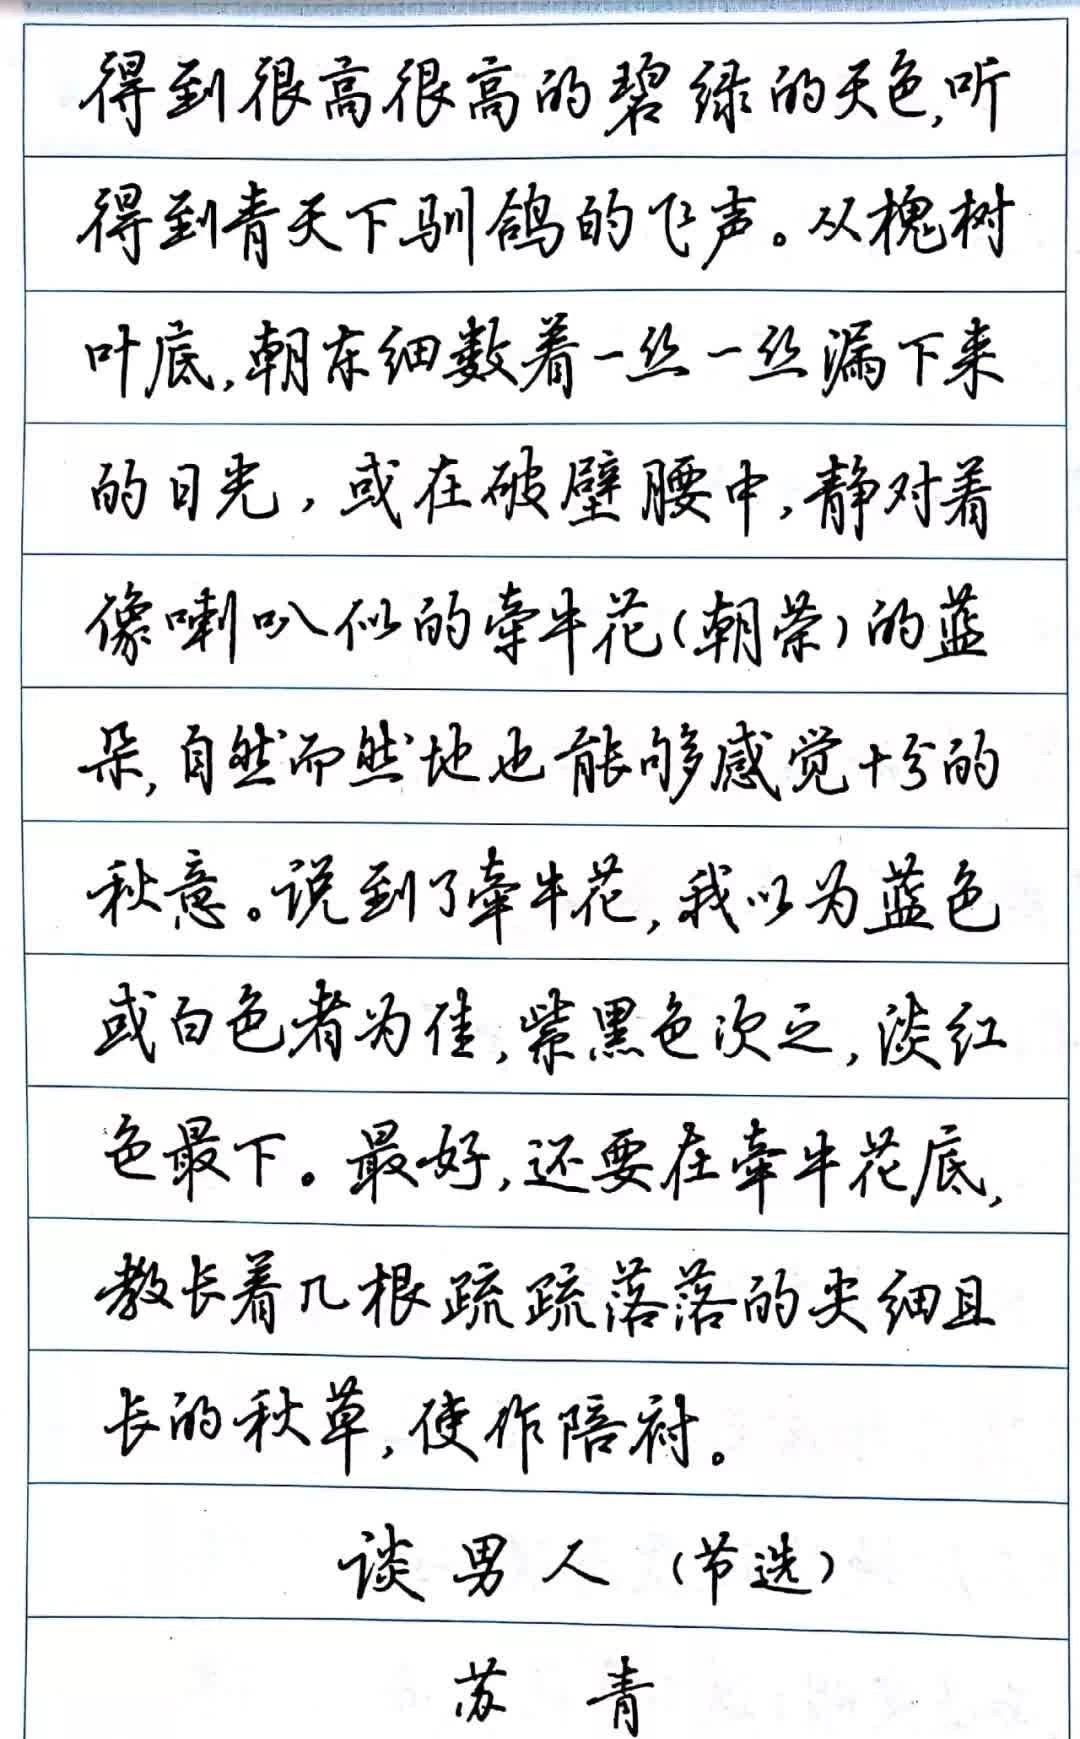 得到很高很高的碧绿的天色,听
得到青天下驯鸽的飞声。从槐树
叶底,朝东细数着一丝一丝漏下来
的日光,或在破壁腰中,静对着
像喇叭似的牵牛花(朝荣)的蓝
朵,自然而然地也能够感觉十分的
秋意。说到了牵牛花,我以为蓝色
或白色者为佳,紫黑色次之,淡红
色最下。最好,还要在牵牛花底,
教长着几根疏疏落落的尖细且
长的秋草,使作陪衬。
谈男人(节选)
苏青